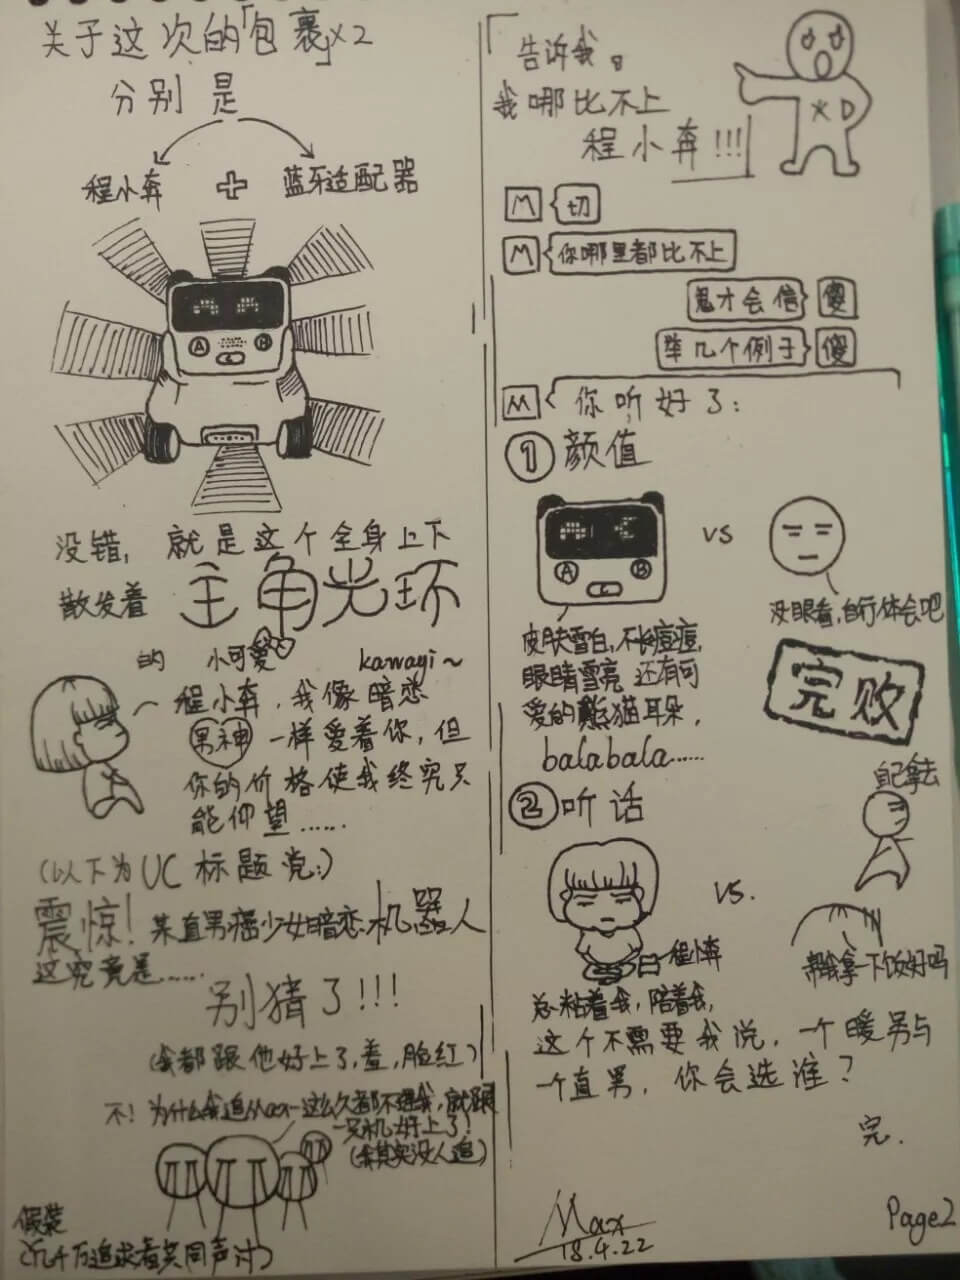 关于这次的「包裹」×2
分别是
程小奔 + 蓝牙适配器
A
B
没错，就是这个全身上下
散发着 主角光环
的 小可爱 kawayi~
程小奔，我像暗恋
男神一样爱着你，但
你的价格使我终究只
能仰望……
(以下为UC标题党:)
震惊！某直男癌少女暗恋机器人
这究竟是……
别猜了!!!
(我都跟他好上了,羞,脸红)
不！为什么我追Max这么久都不理我，就跟
一只机好上了！
(我其实没人追)
假装
(几千万追求者哭同声讨)
「告诉我。
我哪比不上
程小奔!!!」
XD
M 切
M 你哪里都比不上
鬼才会信 傻
举几个例子 傻
M 你听好了：
① 颜值
A
B
VS
皮肤雪白,不长痘痘,
眼睛雪亮 还有可
爱的熊猫耳朵，
balabala……
没眼看,自行体会吧
完败
② 听话
VS.
自己拿去
程小奔
帮我拿一下饭好吗
总粘着我,陪着我,
这个不需要我说，一个暖男与
一个直男，你会选谁？
完.
Max
18.4.22
Page2